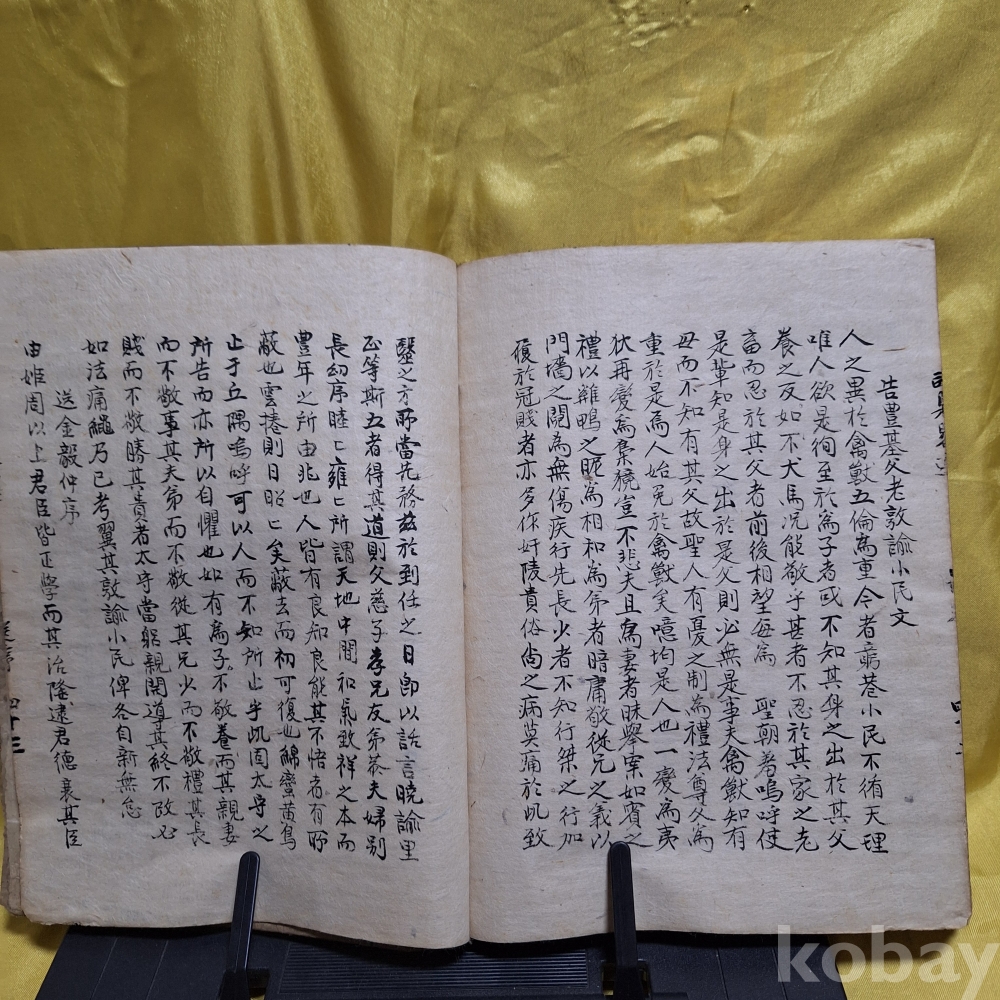 告豊基父老敦諭小民文
人之異於禽獸五倫為重今者窮巷小民不循天理
唯人欲是徇至於為子者或不知其身之出於其父
養之反如不犬馬况能敬乎甚者不忍於其家之老
畜而忍於其父者前後相望每為 聖朝羞嗚呼使
是輩知是身之出於是父則必無是事夫禽獸知有
母而不知有其父故聖人有憂之制為禮法尊父為
重於是為人始免於禽獸矣噫均是人也一變為夷
狄再變為梟獍豈不悲夫且為妻者昧舉案如賓之
禮以雞鴨之昵為相和為弟者暗庸敬從兄之義以
門墻之鬩為無傷疾行先長少者不知行桀之行加
履於冠賤者亦多作奸陵貴俗尚之病莫痛於此致
毉之方所當先務玆於到任之日即以話言曉諭里
正等斯五者得其道則父慈子孝兄友弟恭夫婦別
長幼序睦〻雍〻所謂天地中間和氣致祥之本而
豊年之所由兆也人皆有良知良能其不悟者有所
蔽也雲捲則日昭〻矣蔽去而初可復也綿蠻黃鳥
止于丘隅嗚呼可以人而不如所止乎此固太守之
所告而亦所以自懼也如有為子不敬養而其親妻
而不敬事其夫弟而不敬從其兄少而不敬禮其長
賤而不敬勝其貴者太守當躬親開導其終不改必
如法痛繩乃已考翼其敦諭小民俾各自新無怠
送金毅仲序
由姬周以上君臣皆正學而其治隆逮君德衰其臣
四十三
kobay